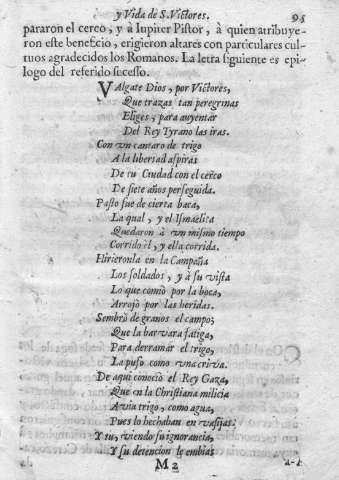 y Vida de S. Victores. 95
pararon el cerco, y à Iupiter Pistor, à quien atribuye-
ron este beneficio, erigieron altares con particulares cul-
tuos agradecidos los Romanos. La letra siguiente es epi-
logo del referido sucesso.
VAlgate Dios, por Victores,
Que trazas tan peregrinas
Eliges, para auyentar
Del Rey Tyrano las iras.
Con vn cantaro de trigo
A la libertad aspiras
De tu Ciudad con el cerco
De siete años perseguida.
Pasto fue de cierta baca,
La qual, y el Ismaelita
Quedaron à vn mismo tiempo
Corrido èl, y ella corrida.
Hirieronla en la Campaña
Los soldados, y à su vista
Lo que comiò por la boca,
Arrojò por las heridas.
Sembrò de granos el campo;
Que la barvara fatiga,
Para derramar el trigo,
La puso como vna criva.
De aqui conociò el Rey Gaza,
Que en la Christiana milicia
Avia trigo, como agua,
Pues lo hechaban en vasijas.
Y su, viendo su ignorancia,
Y su detencion le embias
M 2 A-